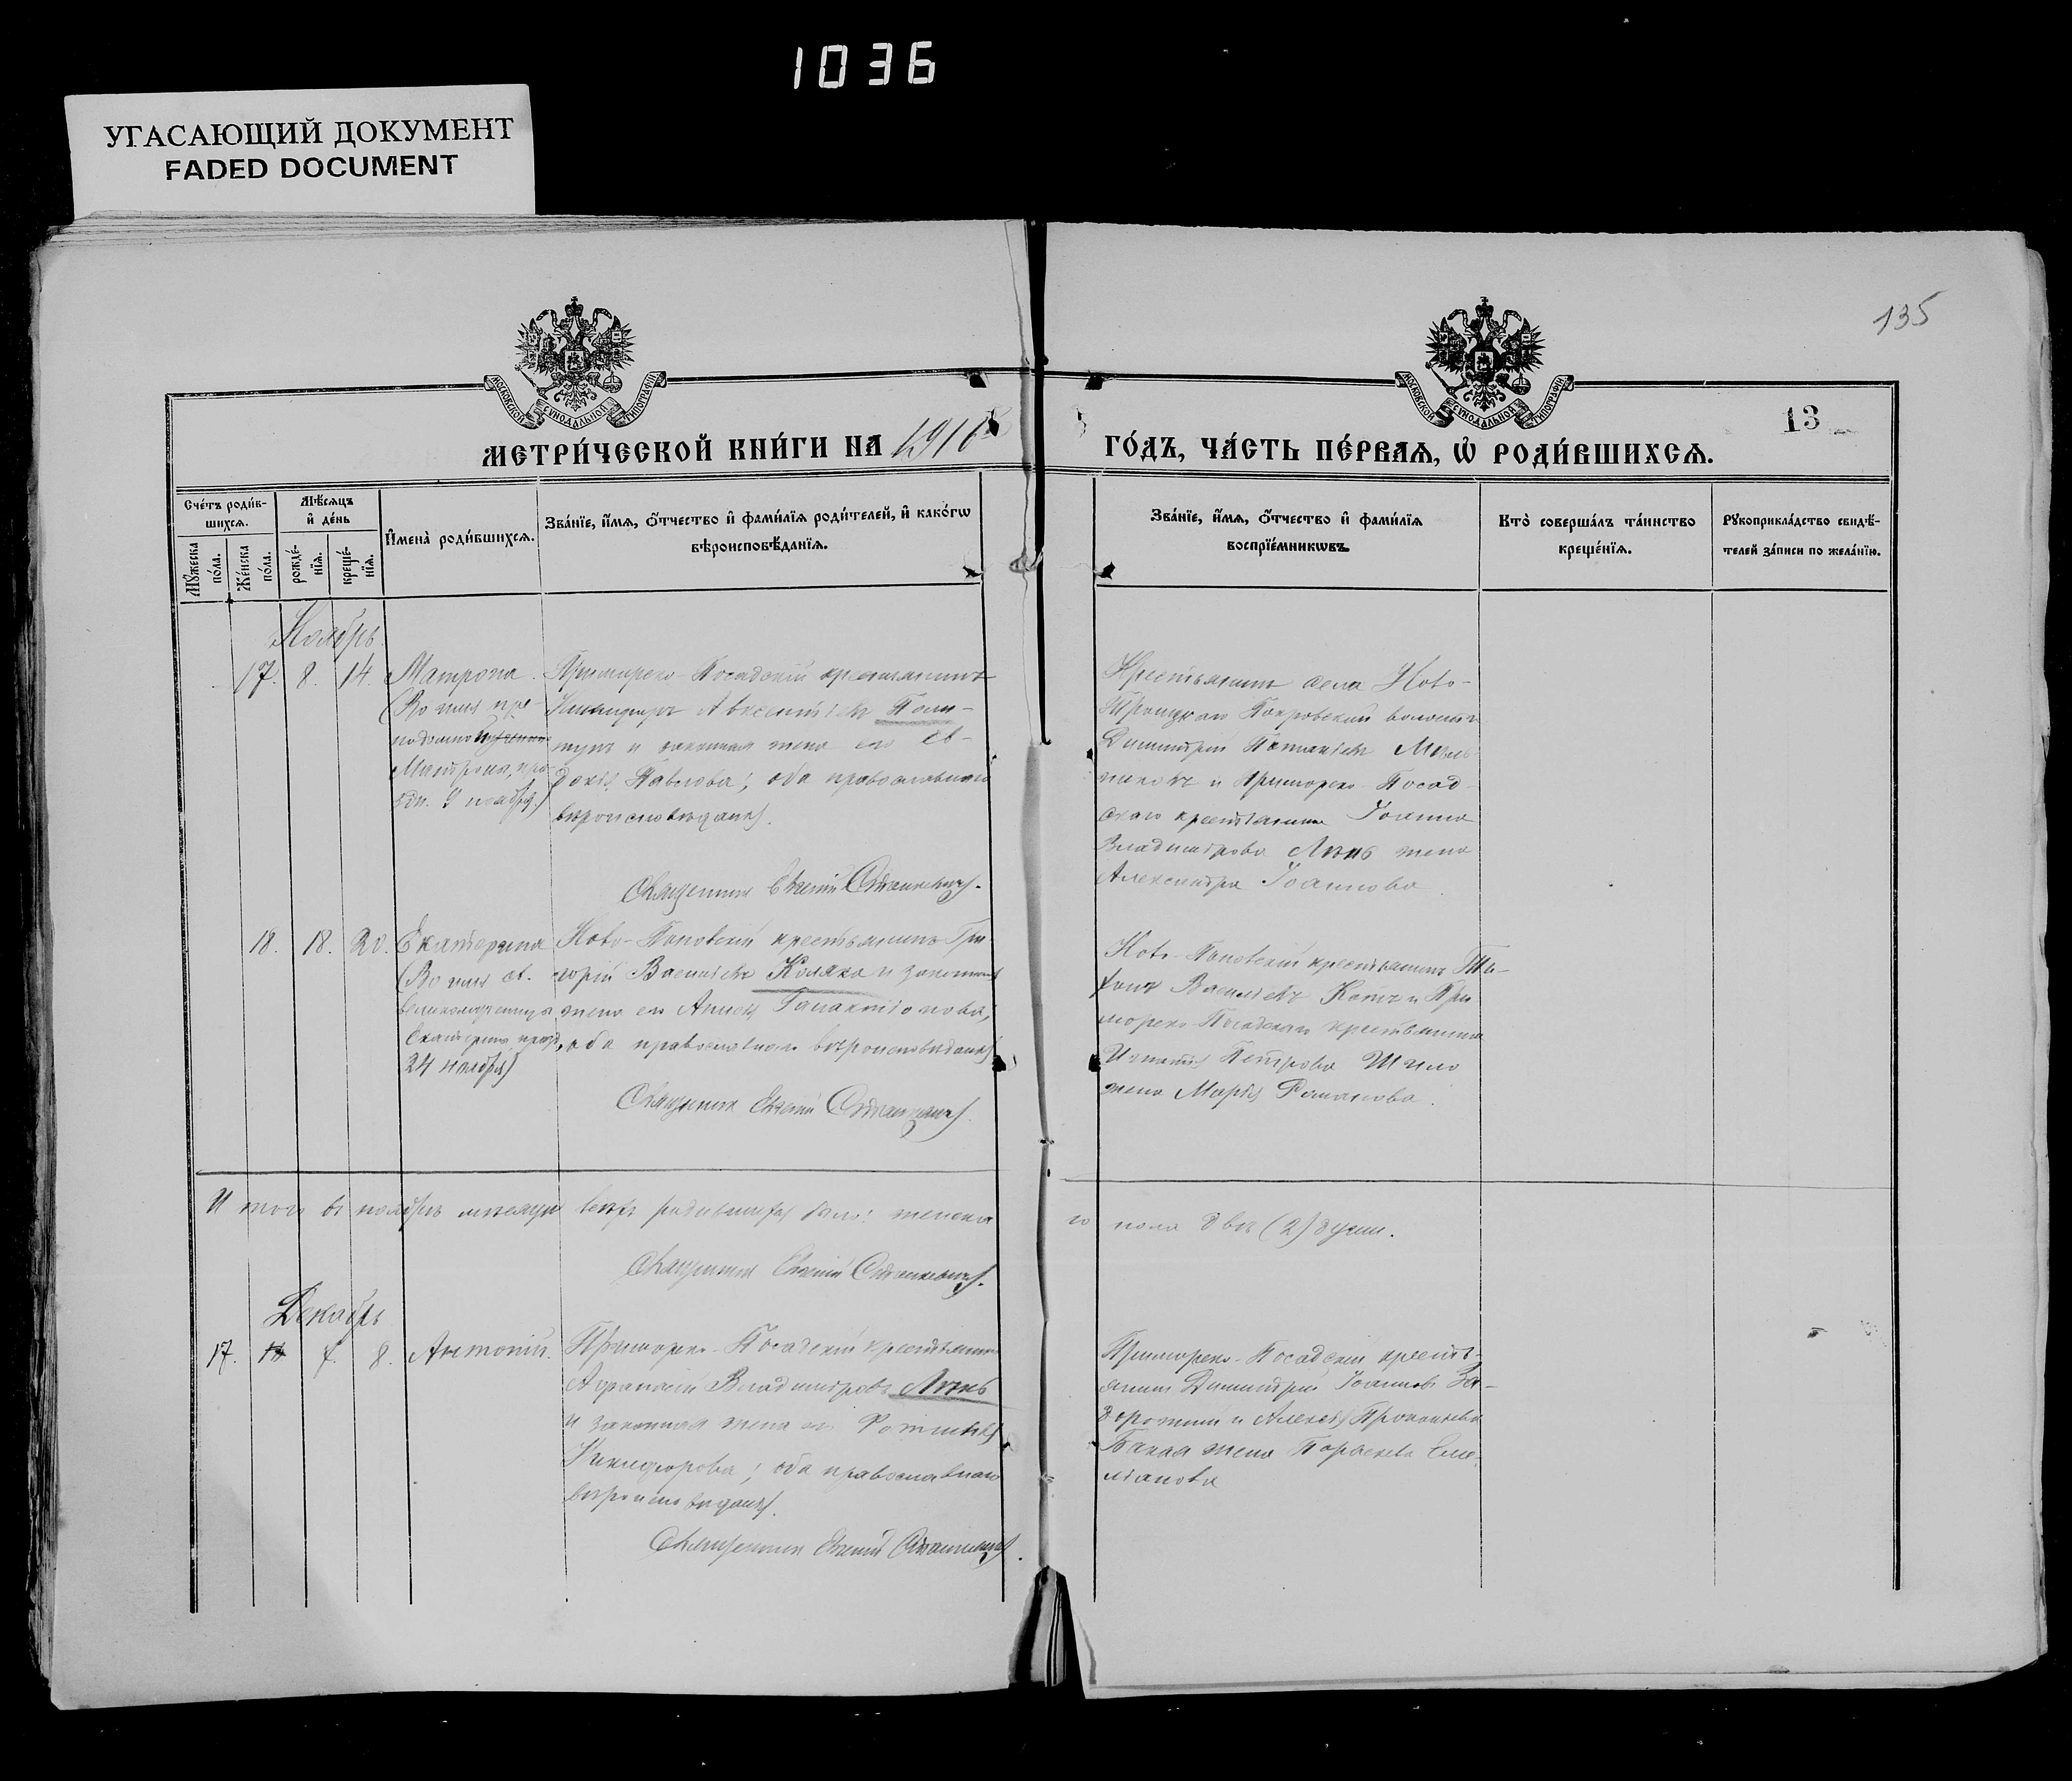 1036
УГАСАЮЩИЙ ДОКУМЕНТ
FADED DOCUMENT
135
13
МОСКОВСКОЙ СѴНОДАЛЬНОЙ ТИПОГРАФІИ
МОСКОВСКОЙ СѴНОДАЛЬНОЙ ТИПОГРАФІИ
МЕТРИ́ЧЕСКОЙ КНИ́ГИ НА 1910
ГО́ДЪ, ЧА́СТЬ ПЕ́РВАѦ, Ѡ҆ РОДИ́ВШИХСѦ.
Сче́тъ роди́в-
шихсѧ.
Мꙋ́жеска по́ла.
Же́нска по́ла.
Мѣ́сѧцъ
и҆ де́нь
рожде́-нїѧ.
креще́-нїѧ.
И҆мена̀ роди́вшихсѧ.
Зва́нїе, и҆́мѧ, ѻ҆́тчество и҆ фами́лїѧ роди́телей, и҆ како́гѡ
вѣроисповѣ́данїѧ.
Зва́нїе, и҆́мѧ, ѻ҆́тчество и҆ фами́лїѧ
воспрїе́мникѡвъ.
Кто̀ соверша́лъ та́инство
креще́нїѧ.
Рꙋкоприкла́дство свидѣ́-
телей за́писи по жела́нїю.
Ноябрь
17. 8. 14.
Матрона.
(Во имя пре-
подобной
Матроны, пра-
здн. 9 ноября)
Приморско-Посадскій крестьянинъ
Авксентіевъ
и законная жена его Ев-
докія Павлова; оба православнаго
вѣроисповѣданія.
Священник Евгеній Станкевичъ.
Крестьянинъ села Ново-
Троицкаго Покровской волости
Димитрій Мель-
никовъ и Приморско-Посад-
скаго крестьянина Іоанна
Владимірова Линь жена
Александра Іоаннова
18. 18. 20.
Екатерина
(Во имя св.
великомученицы
Екатерины празд.
24 ноября)
Ново-Поповскій крестьянинъ Гри-
горій Васильевъ Коляка и законная
жена его Анна Галактіонова;
оба православнаго вѣроисповѣданія
Священник Евгеній Станкевичъ.
Ново-Поповскій крестьянинъ Ти-
хонъ Васильевъ Котъ и При-
морско-Посадскаго крестьянина
Игнатія Петрова Шило
жена Марія Романова.
Итого въ ноябрѣ мѣсяцѣ всѣхъ родившихся было: женска
го пола двѣ (2) души.
Священник Евгеній Станкевичъ.
Декабрь
17. 7. 8.
Антоній.
Приморско-Посадскій крестьянинъ
Афанасій Владиміровъ Линь
и законная жена его Фотинія
Никифорова; оба православнаго
вѣроисповѣданія.
Священник Евгеній Станкевичъ.
Приморско-Посадскій кресть-
янинъ Димитрій Іоанновъ За-
дорожный и Алексѣя Прокопьева
жена Параскева Еме-
ліанова